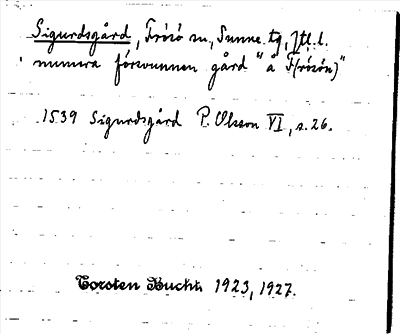 Sigurdsgård, Frösö sn, Sunne tg, Jtl. l.
numera försvunnen gård "å F(rösön)"
1539 Sigurdsgård P. Olsson VI, s. 26.
Torsten Bucht. 1923, 1927.